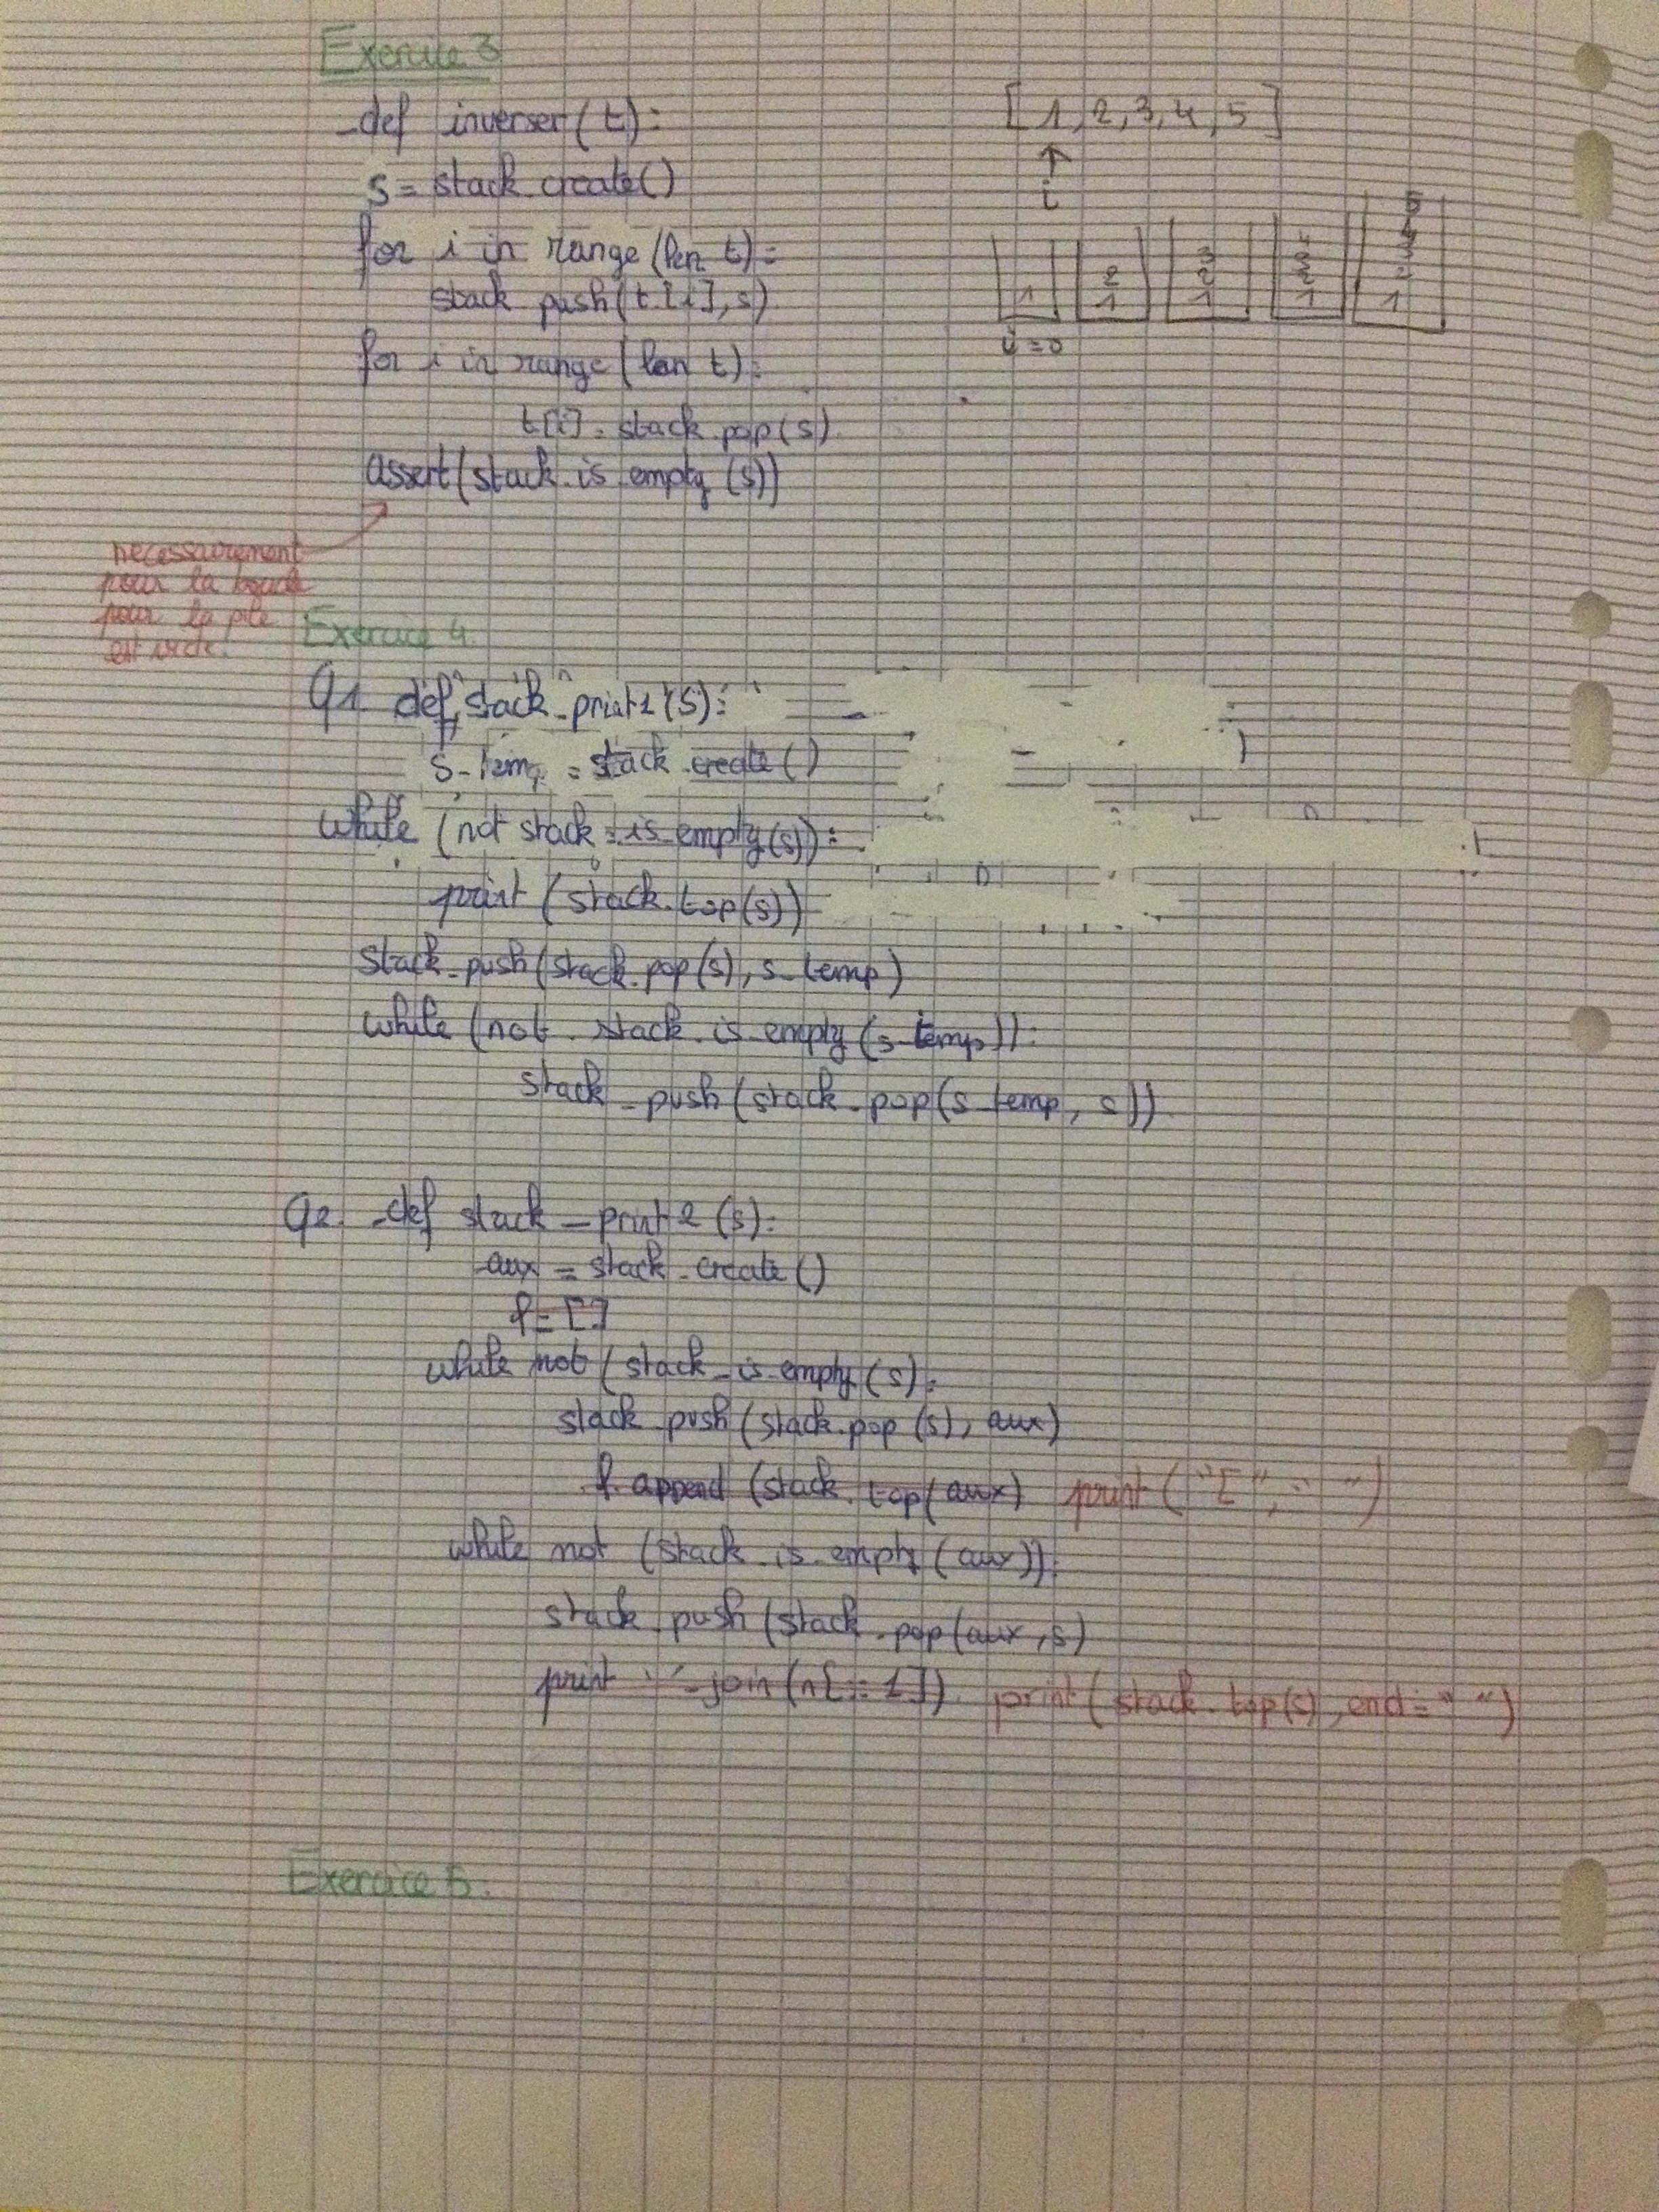 Exercice 3
def inverser(t):
[1, 2, 3, 4, 5]
i
s = stack_create()
for i in range(len t):
stack push(t[i], s)
1
2
1
3
2
1
1
1
i = 0
for i in range(len t):
t[i] = stack_pop(s)
assert(stack_is_empty(s))
necessairement
pour la boucle
pour la pile
est vide.
Exercice 4.
Q1. def stack_print1(s):
s_temp = stack_create()
while (not stack_is_empty(s)):
print (stack_top(s))
stack_push(stack_pop(s), s_temp)
while (not stack_is_empty(s_temp)):
stack_push(stack_pop(s_temp, s))
Q2. def stack_print2(s):
aux = stack_create()
l = []
while not (stack_is_empty(s):
stack_push(stack_pop(s), aux)
l.append (stack_top(aux) print("[",
while not (stack_is_empty(aux)):
stack_push(stack_pop(aux, s)
print join (n[::1]) print(stack_top(s), end=" ")
Exercice 5.